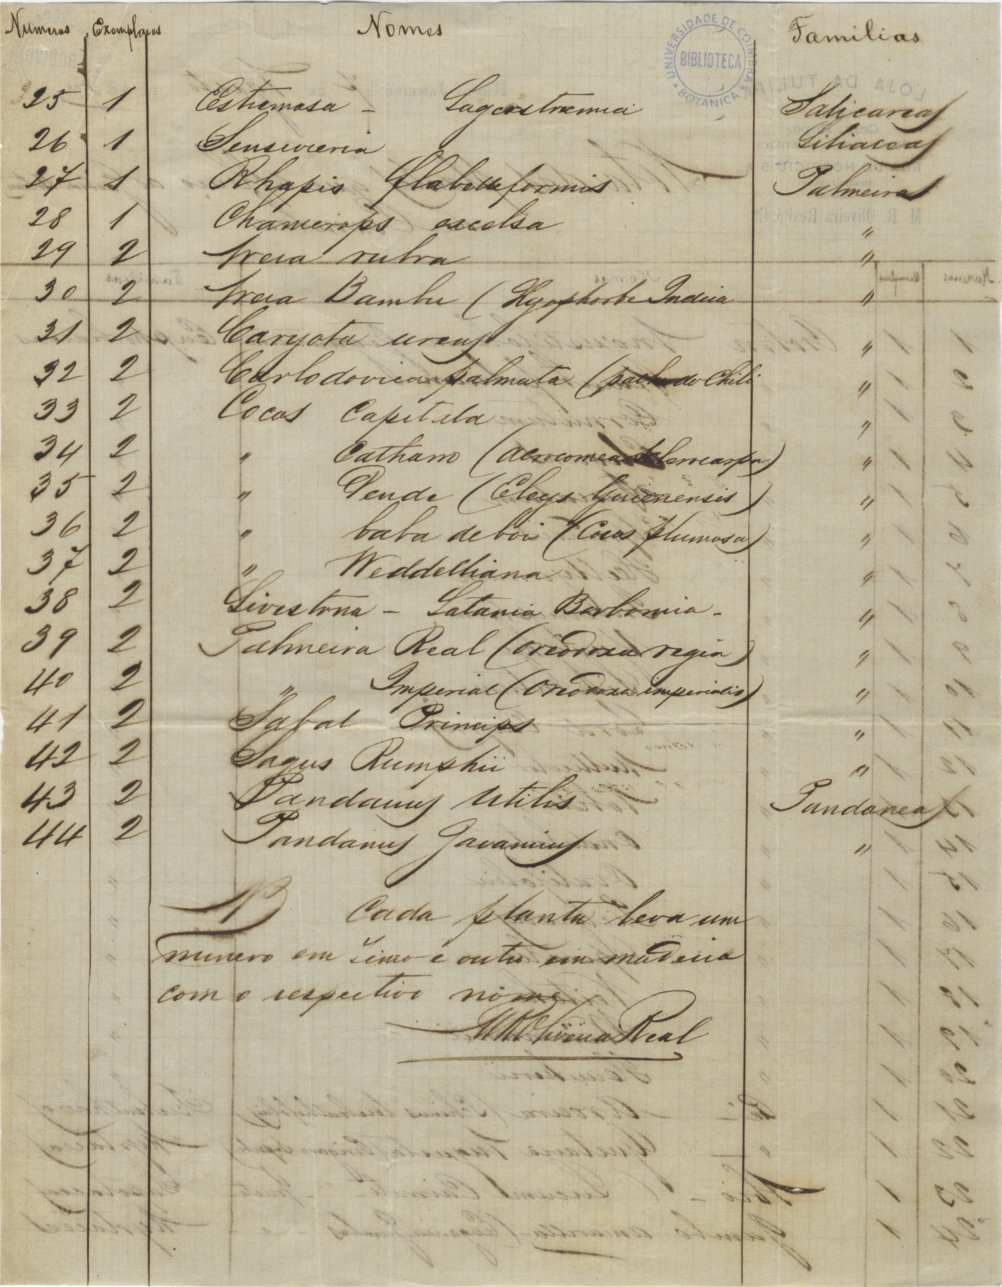 Numeros Exemplares Nomes Familias
UNIVERSIDADE DE COIMBRA
BIBLIOTECA
BOTANICA
25 1 Estremosa - Lagerstremia Salicareas
26 1 Sensivieria Liliacea
27 1 Rhapis flabelleformis Palmeiras
28 1 Chamerops excelsa "
29 2 Areia rubra "
30 2 Areia Bambu (Hyophorbe Indica "
31 2 Caryota urens "
32 2 Carlodovica palmata (palha do Chili "
33 2 Cocos Capitela "
34 2 " Catharro (Acrocomea )"
35 2 " Dende (Eleys Guienensis) "
36 2 " baba de boi (Cocos plumosa) "
37 2 " Weddelliana "
38 2 Livestona - Latania Borbonia - "
39 2 Palmeira Real (Oreodoxa regia) "
40 2 " Imperial (Oreodoxa imperialis) "
41 2 Sabal Princips "
42 2 Sagus Rumphii "
43 2 Pandanus Utilis Pandaneas
44 2 Pandanus Javanicus "
NB Cada planta leva um
numero em zinco e outro em madeira
com o respectivo nome
M R Oliveira Real